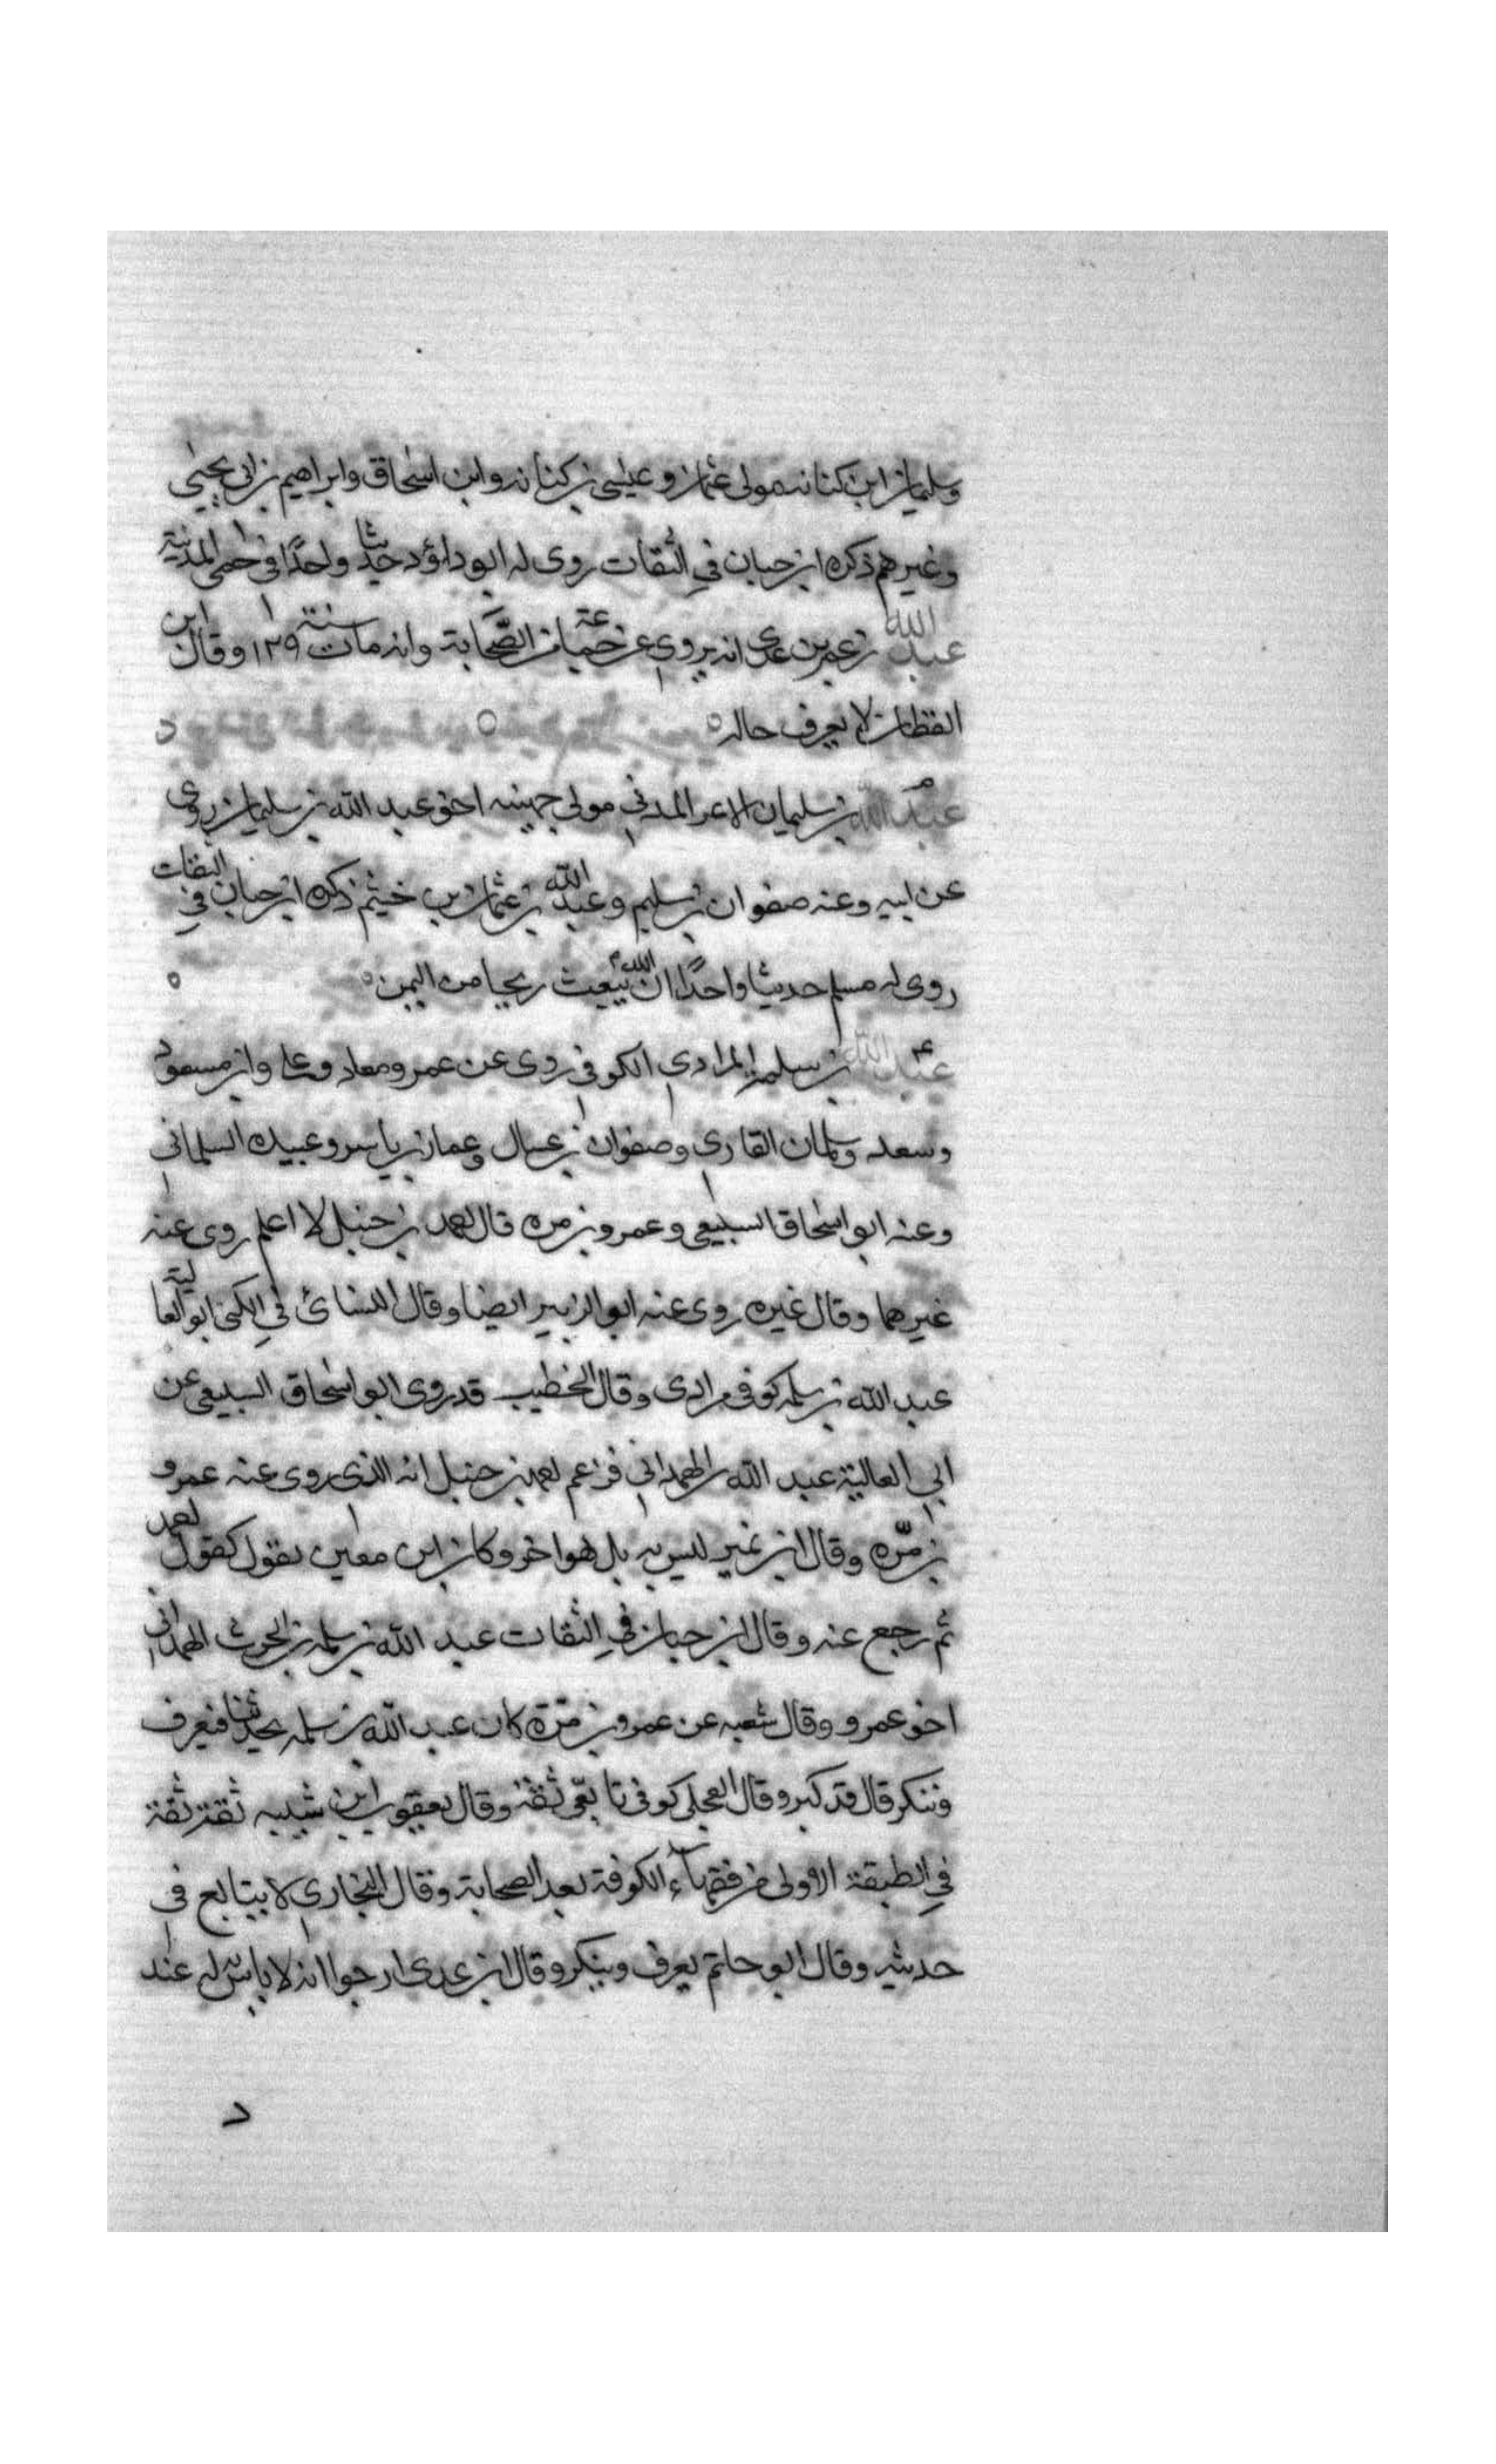 وسليمان ابن كنانه مولى عثمان وعيسى بن كنانه وابن اسحاق وابراهيم بن ابى يحيى
وغيرهم ذكره ابن حبان في الثقات روى له ابو داؤد حديثا واحدًا في حمى المدينة
عبد الله بن عمر بن عدى انه يروى عن جماعة من الصّحابة وانه مات سنة ١٢٩ وقال ابن
القطان لا يعرف حاله
عبد الله بن سليمان الاغر المدني مولى جهينه اخو عبد الله بن سليمان روى
عن ابيه وعنه صفوان بن سليم وعبد الله بن عثمان بن خيثم ذكره ابن حبان في الثقات
روى له مسلم حديثا واحدًا ان الله يبعث ريحا من اليمن
عبد الله بن سلمه المرادى الكوفي روى عن عمر ومعاد وعلى وابن مسعود
وسعد وسلمان القارى وصفوان بن عسال وعمار بن ياسر وعبيده السلمانى
وعنه ابو اسحاق السبيعى وعمرو بن مره قال احمد بن حنبل لا اعلم روى عنه
غيرهما وقال غيره روى عنه ابو الزبير ايضا وقال النسائ في الكنى ابو العالية
عبد الله بن سلمه كوفى مرادى وقال الخطيب قد روى ابو اسحاق السبيعى عن
ابي العالية عبد الله الهمدانى فزعم احمد بن حنبل انه الذى روى عنه عمرو
بن مرّه وقال ابن نمير ليس به بل هو اخر وكان ابن معين يقول كقول احمد
ثم رجع عنه وقال ابن حبان في الثقات عبد الله بن سلمه بن الحرث الهمدانى
اخو عمرو وقال شعبه عن عمرو بن مرّة كان عبد الله بن سلمه يحدثنا فنعرف
وننكر قال قد كبر وقال العجلى كوفى تابعّى ثقة وقال يعقوب ابن شيبه ثقة ثقة
في الطبقة الاولى من فقهآء الكوفة بعد الصحابة وقال البخارى لا يتابع فى
حديثه وقال ابو حاتم يعرف وينكر وقال ابن عدى ارجوا انه لا باس به له عند
د